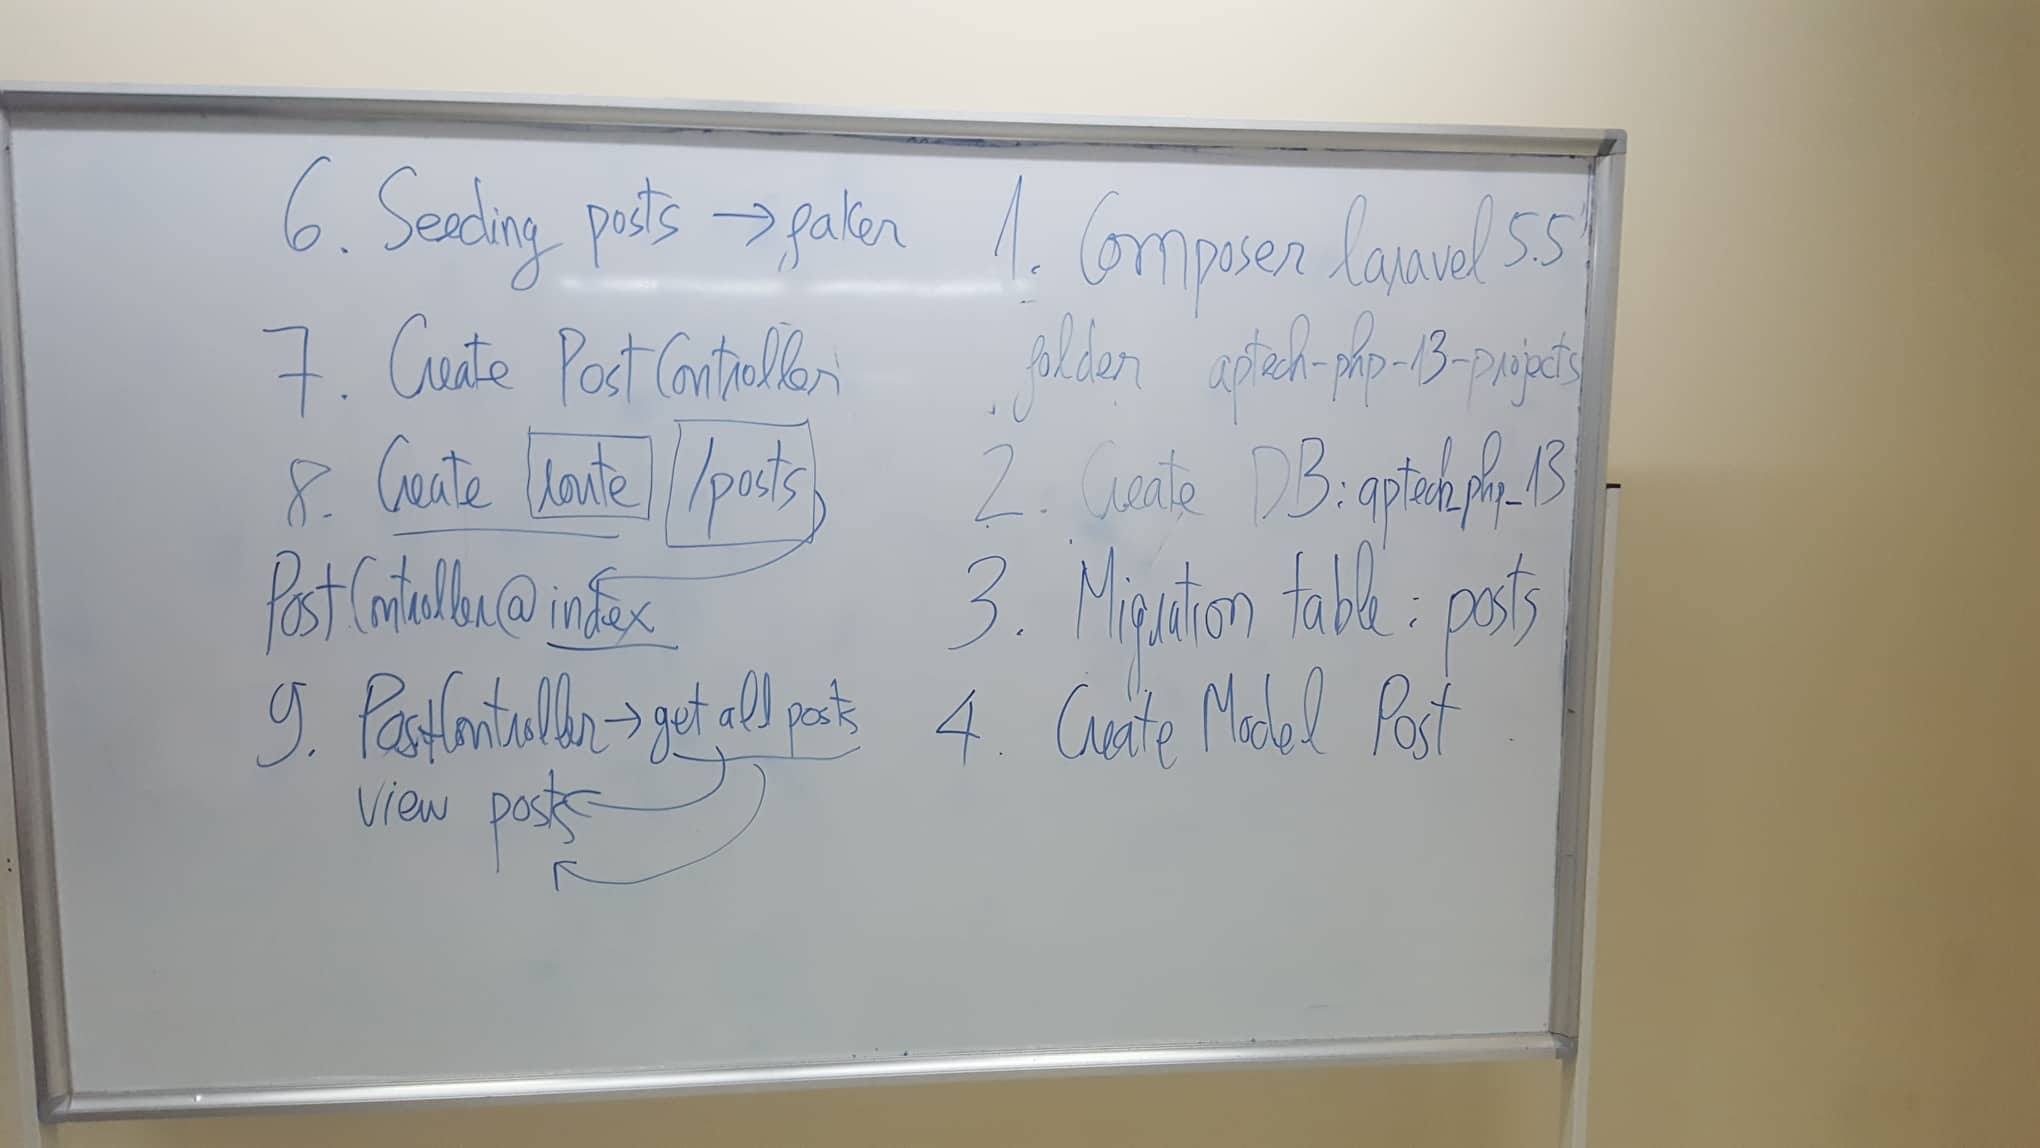 6. Seeding posts → faker
7. Create PostController
8. Create route /posts
PostController@index
9. PostController → get all posts
view posts
1. Composer laravel 5.5
folder aptech-php-13-projects
2. Create DB: aptech_php_13
3. Migration table: posts
4. Create Model Post